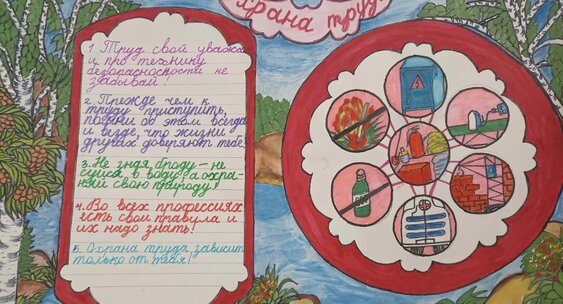 охрана труда
1 Труд свой уважай
и про технику
безопасности не
забывай!
2. Прежде чем к
труду приступить,
помни об этом всегда
и везде, что жизни
других доверяют тебе!
3. Не зная броду – не
суйся в воду, а охра-
няй свою природу!
4. Во всех профессиях
есть свои правила и
их надо знать!
5. Охрана труда зависит
только от тебя!